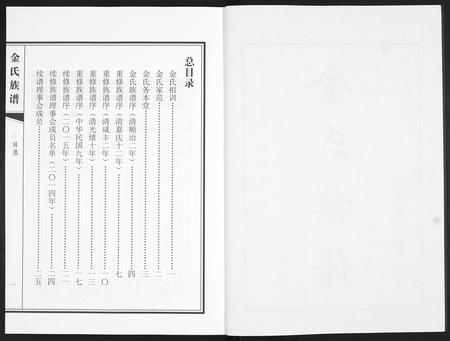 总目录
金氏祖训……一
金氏家范……二
金氏务本堂……三
金氏族谱序（清顺治二年）……四
重修族谱序（清嘉庆十二年）……七
重修族谱序（清咸丰二年）……一〇
重修族谱序（清光绪十年）……一三
重修族谱序（中华民国九年）……一七
续修族谱序（二〇一五年）……二一
续修族谱理事会成员名单（二〇一四年）……二四
续谱理事会成员……二五
金氏族谱
目录
一
金氏族谱